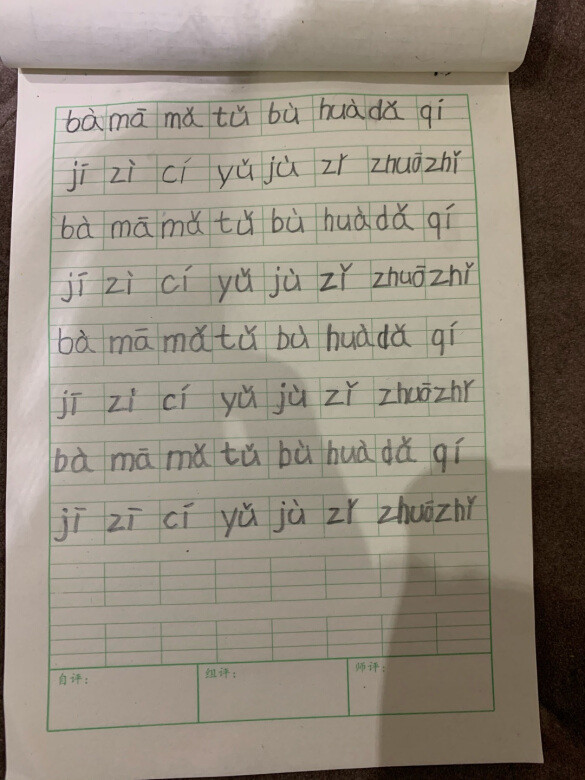 bà mā mǎ tǔ bù huà dǎ qí
jī zì cí yǔ jù zǐ zhuō zhǐ
bà mā mǎ tǔ bù huà dǎ qí
jī zì cí yǔ jù zǐ zhuō zhǐ
bà mā mǎ tǔ bù huà dǎ qí
jī zì cí yǔ jù zǐ zhuō zhǐ
bà mā mǎ tǔ bù huà dǎ qí
jī zī cí yǔ jù zǐ zhuō zhǐ
自评： 组评： 师评：